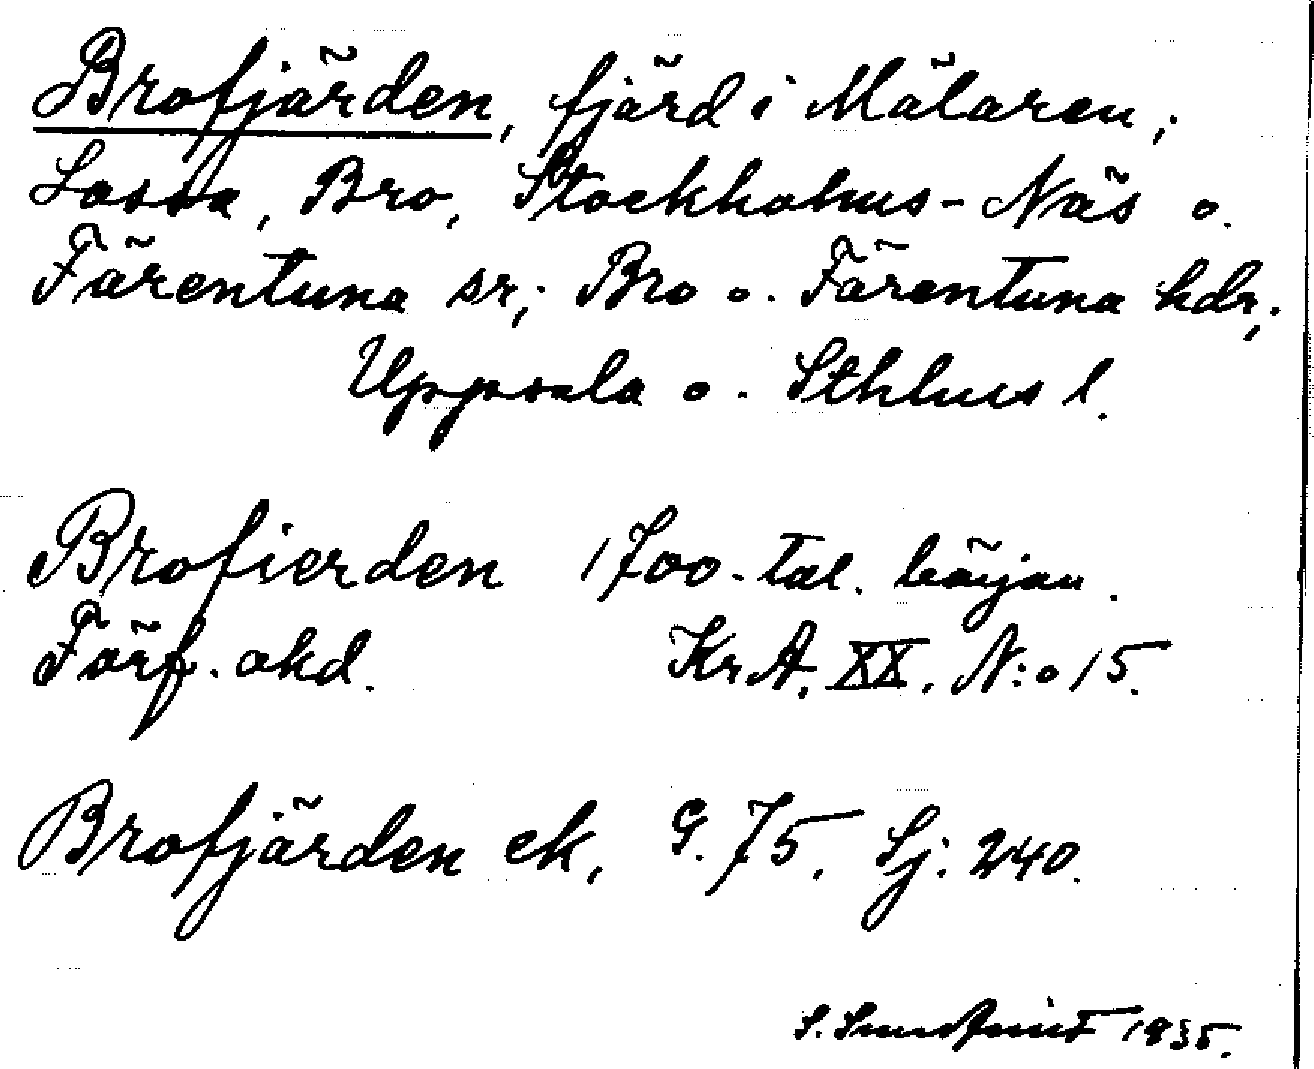 Brofjärden, fjärd i Mälaren;
Lossa, Bro, Stockholms-Näs o.
Färentuna sr; Bro o. Färentuna hdr;
Uppsala o. Sthlms l.
Brofierden 1700-tal. början.
Förf. okd. Kr A. XX. N:o 15.
Brofjärden ek. G. 75. Sj: 240.
S. 1935.